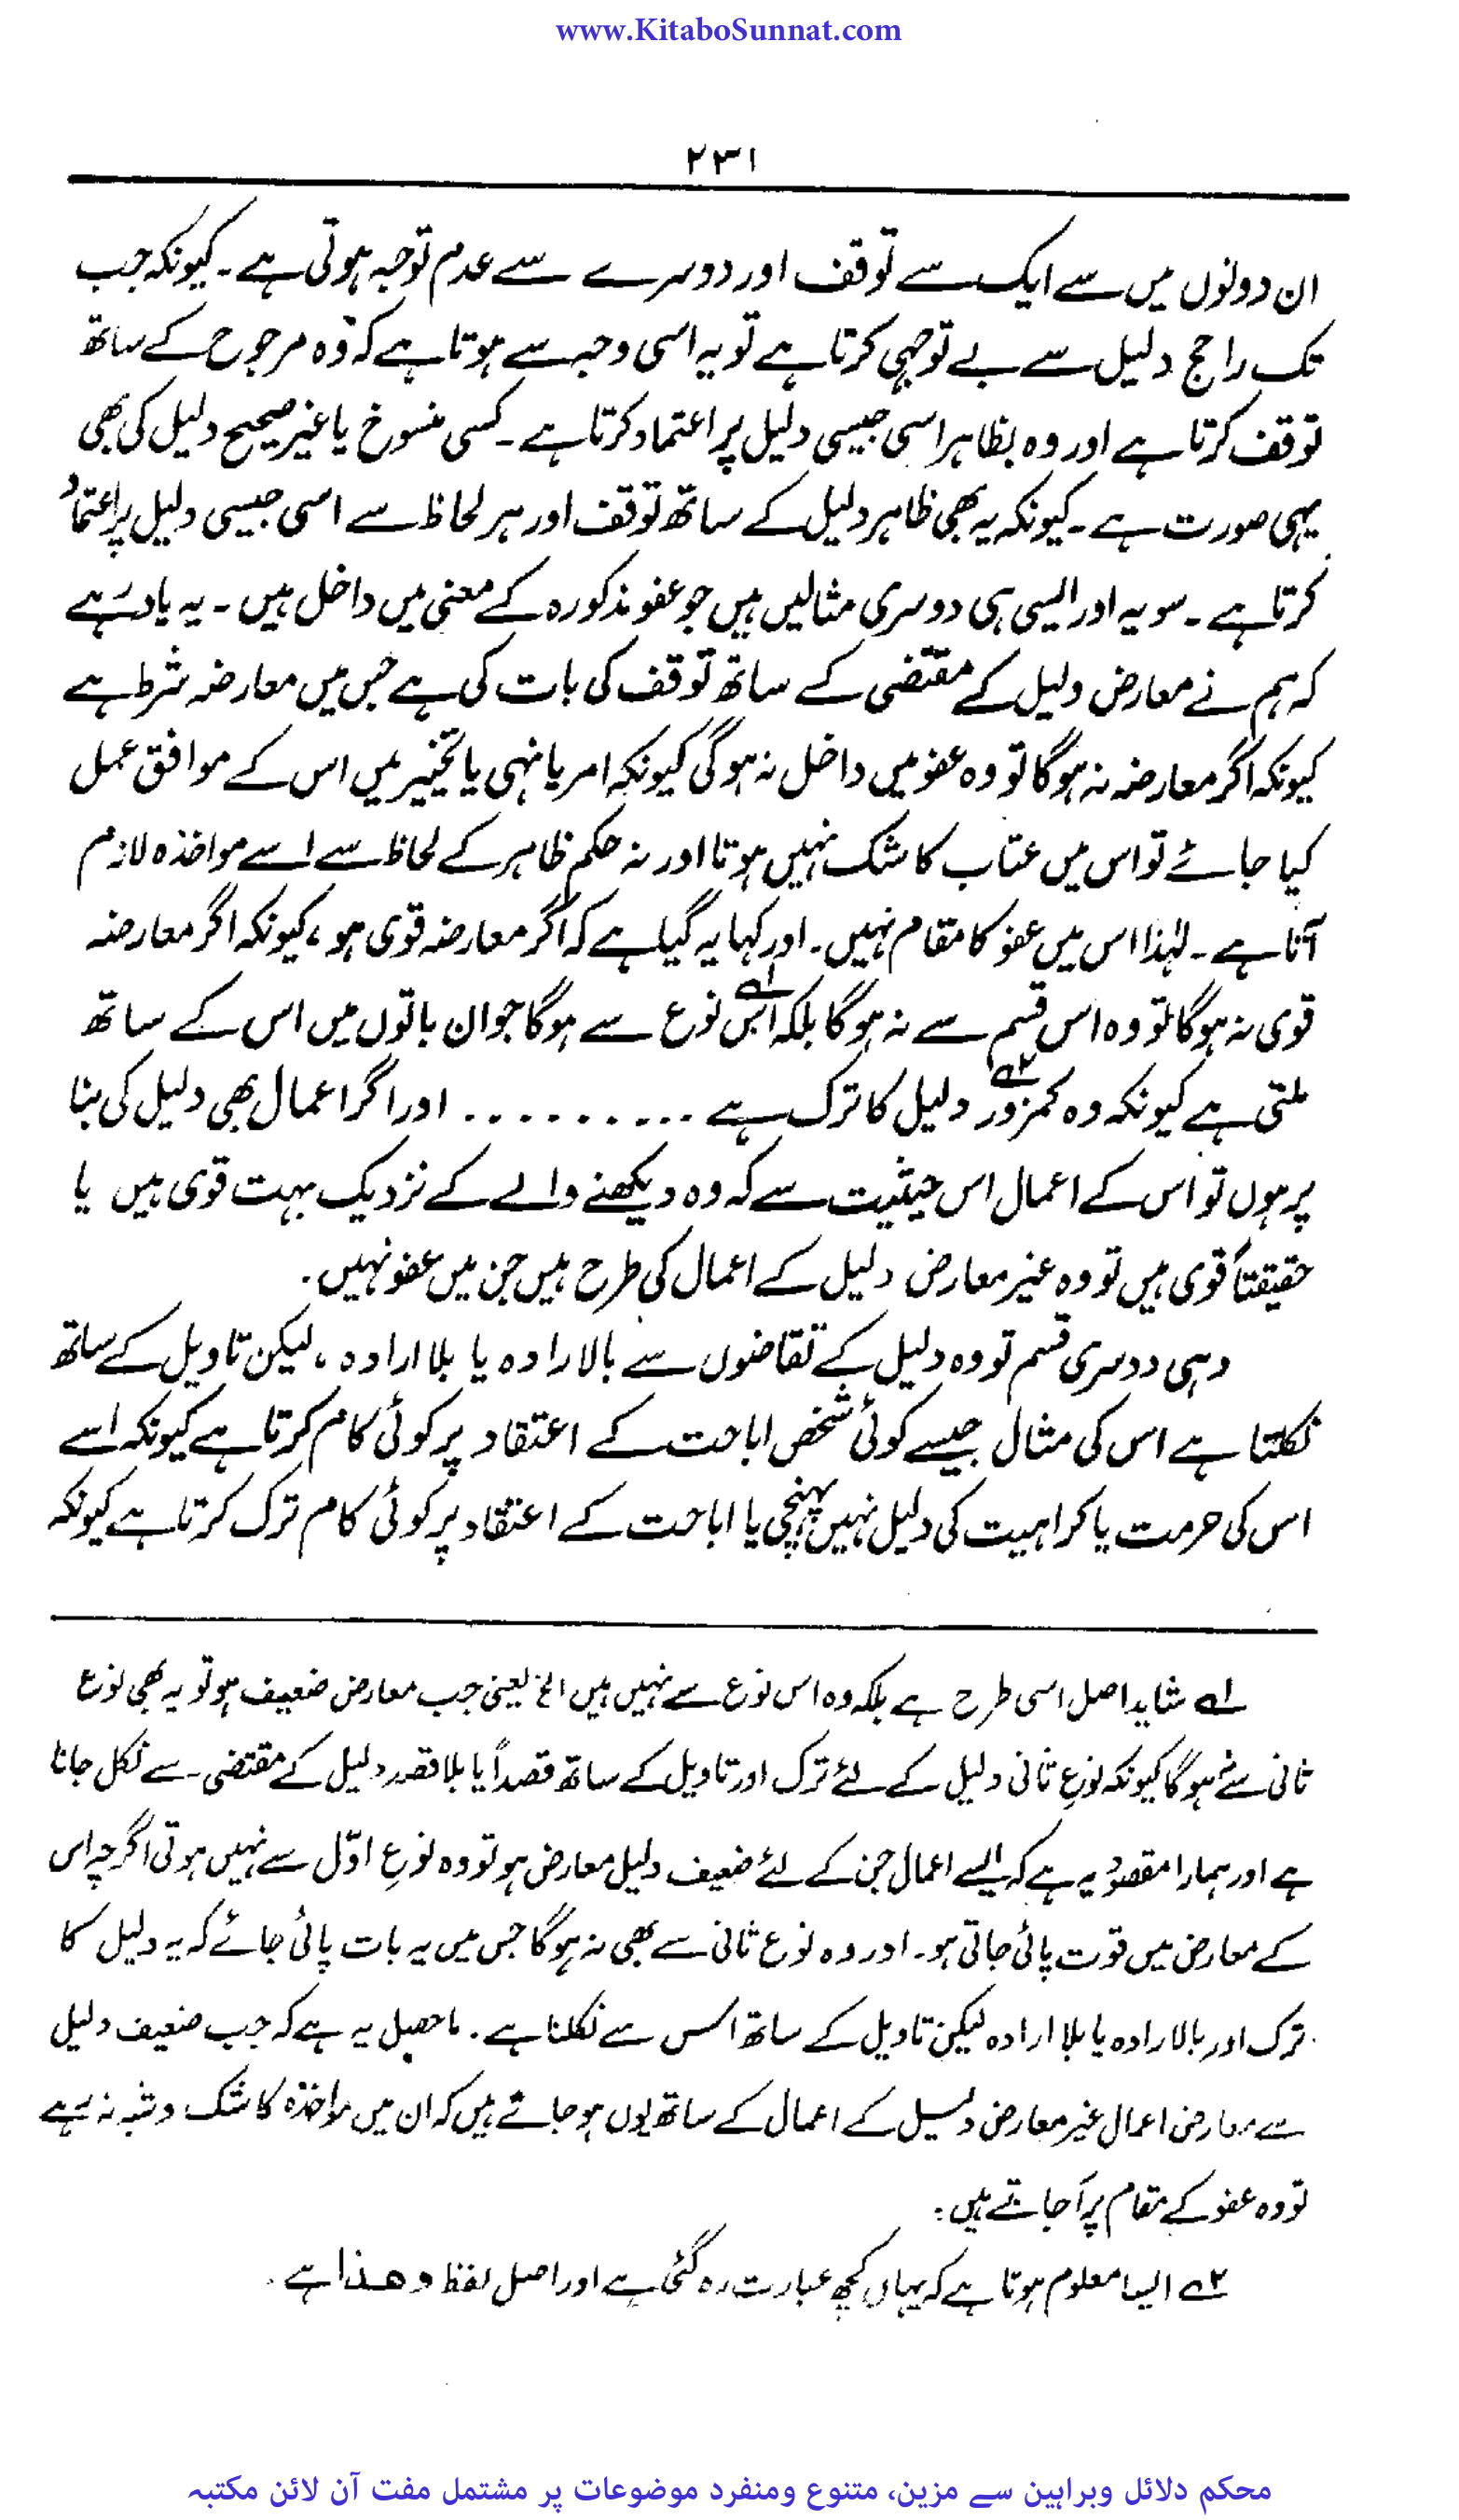 www.KitaboSunnat.com
۲۳۱
ان دونوں میں سے ایک سے توقف اور دوسرے سے عدم توجہ ہوتی ہے ۔ کیونکہ جب
تک راجح دلیل سے بے توجہی کرتا ہے تو یہ اسی وجہ سے ہوتا ہے کہ وہ مرجوح کے ساتھ
توقف کرتا ہے اور وہ بظاہر اسی جیسی دلیل پر اعتماد کرتا ہے ۔ کسی منسوخ یا غیر صحیح دلیل کی بھی
یہی صورت ہے ۔ کیونکہ یہ بھی ظاہر دلیل کے ساتھ توقف اور ہر لحاظ سے اسی جیسی دلیل پر اعتماد
کرتا ہے ۔ سو یہ اور ایسی ہی دوسری مثالیں ہیں جو عفو مذکورہ کے معنی میں داخل ہیں ۔ یہ یاد رہے
کہ ہم نے معارض دلیل کے مقتضی کے ساتھ توقف کی بات کی ہے جس میں معارضہ شرط ہے
کیونکہ اگر معارضہ نہ ہوگا تو وہ عفو میں داخل نہ ہوگی کیونکہ امر یا نہی یا تخییر میں اس کے موافق عمل
کیا جائے تو اس میں عتاب کا شک نہیں ہوتا اور نہ حکم ظاہر کے لحاظ سے اسے مواخذہ لازم
آتا ہے ۔ لہٰذا اس میں عفو کا مقام نہیں ۔ اور کہا یہ گیا ہے کہ اگر معارضہ قوی ہو ، کیونکہ اگر معارضہ
قوی نہ ہوگا تو وہ اس قسم سے نہ ہوگا بلکہ اس۱؎ نوع سے ہوگا جو ان باتوں میں اس کے ساتھ
ملتی ہے کیونکہ وہ کمزور۲؎ دلیل کا ترک ہے ۔۔۔۔۔۔۔۔۔ اور اگر اعمال بھی دلیل کی بنا
پر ہوں تو اس کے اعمال اس حیثیت سے کہ وہ دیکھنے والے کے نزدیک بہت قوی ہیں یا
حقیقتاً قوی ہیں تو وہ غیر معارض دلیل کے اعمال کی طرح ہیں جن میں عفو نہیں ۔
رہی دوسری قسم تو وہ دلیل کے تقاضوں سے بالارادہ یا بلا ارادہ ، لیکن تاویل کے ساتھ
نکلتا ہے اس کی مثال جیسے کوئی شخص اباحت کے اعتقاد پر کوئی کام کرتا ہے کیونکہ اسے
اس کی حرمت یا کراہیت کی دلیل نہیں پہنچی یا اباحت کے اعتقاد پر کوئی کام ترک کرتا ہے کیونکہ
۱؎ شاید اصل اسی طرح ہے بلکہ وہ اس نوع سے نہیں ہیں الخ یعنی جب معارض ضعیف ہو تو یہ بھی نوع
ثانی سے ہوگا کیونکہ نوعِ ثانی دلیل کے لئے ترک اور تاویل کے ساتھ قصداً یا بلا قصد دلیل کے مقتضی سے نکل جانا
ہے اور ہمارا مقصود یہ ہے کہ ایسے اعمال جن کے لئے ضعیف دلیل معارض ہو تو وہ نوعِ اوّل سے نہیں ہوتی اگرچہ اس
کے معارض میں قوت پائی جاتی ہو ۔ اور وہ نوع ثانی سے بھی نہ ہوگا جس میں یہ بات پائی جائے کہ یہ دلیل کا
ترک اور بالارادہ یا بلا ارادہ لیکن تاویل کے ساتھ اس سے نکلنا ہے ۔ ماحصل یہ ہے کہ جب ضعیف دلیل
سے معارض اعمال غیر معارض دلیل کے اعمال کے ساتھ یوں ہو جاتے ہیں کہ ان میں مواخذہ کا شک و شبہ نہ رہے
تو وہ عفو کے مقام پر آجاتے ہیں ۔
۲؎ ایسا معلوم ہوتا ہے کہ یہاں کچھ عبارت رہ گئی ہے اور اصل لفظ وھذا ہے ۔
محکم دلائل وبراہین سے مزین، متنوع ومنفرد موضوعات پر مشتمل مفت آن لائن مکتبہ